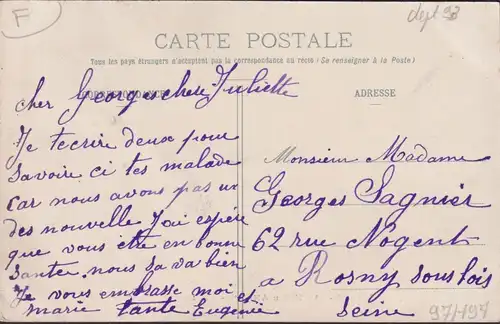 F
dept 93
CARTE POSTALE
Tous les pays étrangers n'acceptent pas la correspondance au recto (Se renseigner à la Poste)
CORRESPONDANCE
ADRESSE
cher Georges chere Juliette
Je tecrire deux pour
savoire ci tes malade
car nous avons pas us
des nouvelle J'ai espère
que vous ette en bonne
santer nous sa va bien
Je vous embrasse moi et
marie tante Eugenie
Monsieur Madame
Georges Sagnier
62 rue Nogent
a Rosny sous bois
Seine